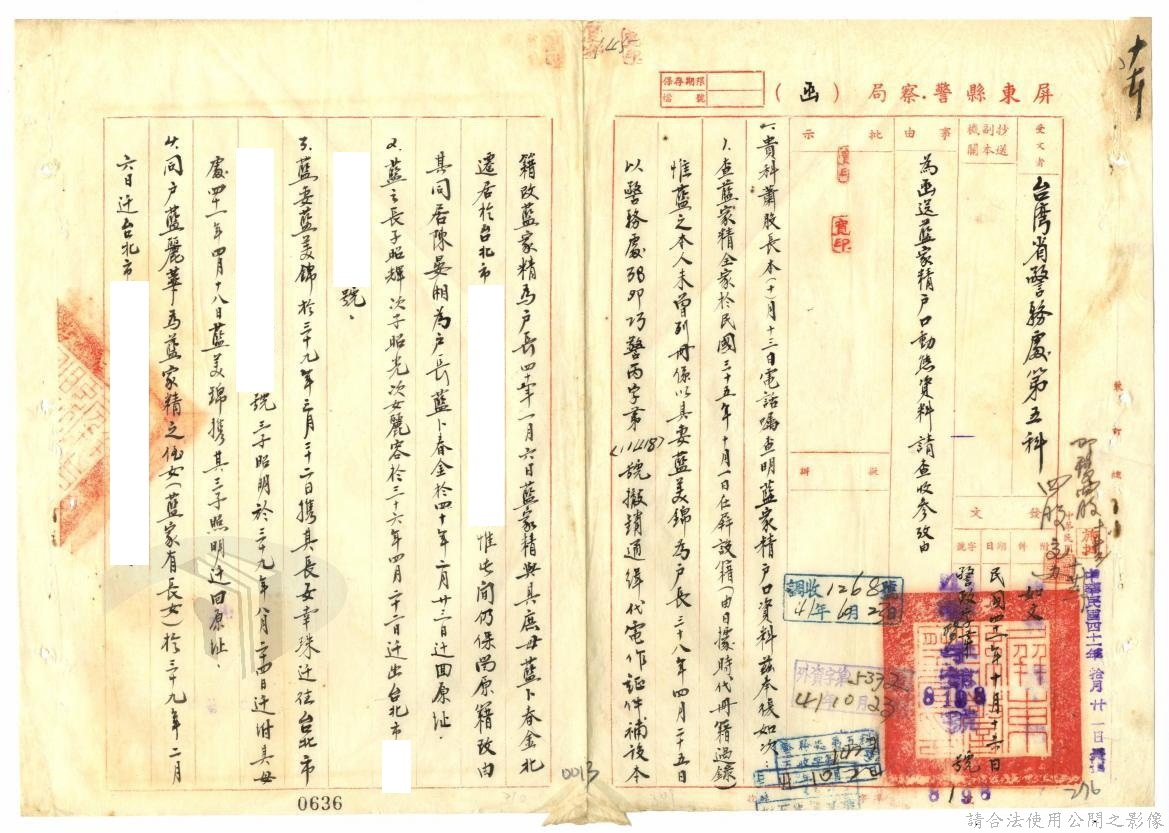 屏東縣警察局（函）
保存期限
檔號
受文者
台湾省警務處第五科
抄送副本機關
事由
為函送藍家精戶口動態資料請查收參攷由
批示
擬辦
發文
附件
如文
日期
民國四十一年十月十六日
字號
一、貴科蕭股長本(十)月十三日電話囑查明藍家精戶口資料茲奉復如次：
1.查藍家精全家於民國三十五年十月一日在屏設籍(由日據時代冊籍過錄)
惟藍之本人未曾列冊係以其妻藍美錦為戶長三十八年四月二十五日
以警務處38卯巧警丙字第(11418)號撤銷通緝代電作証件補設本
籍改藍家精為戶長四十年一月六日藍家精與其庶母藍卜春金北
遷居於台北市
惟此間仍保留原籍改由
其同居陳晏湘為戶長藍卜春金於四十年二月廿三日迁回原址.
2.藍之長子昭輝次子昭光次女麗容於三十六年四月二十二日迁出台北市
號、
3.藍妻藍美錦於三十九年三月三十二日携其長女幸珠迁往台北市
號三子昭明於三十九年八月二四日迁附其母
處四十一年四月十八日藍美錦携其三子照明迁回原址.
4.同戶藍麗華為藍家精之侄女(藍家有長女)於三十九年二月
六日迁台北市
調收1268號
41年10月23日
外資字第5332
41年10月23
中華民國四十一年拾月廿一日
8198號
8198
276
0013
0636
請合法使用公開之影像